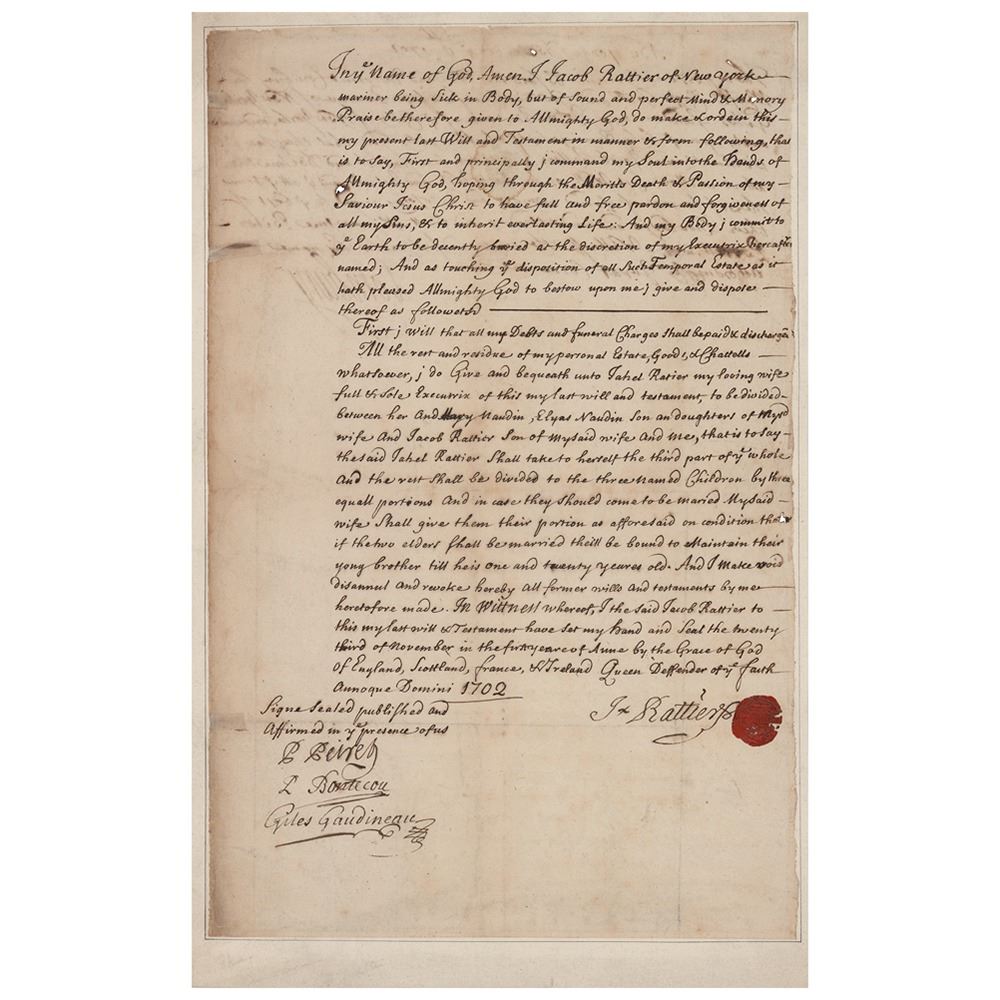 In yͤ Name of God, Amen. I Jacob Rattier of New york
mariner being Sick in Body, but of Sound and perfect Mind & Memory
Praise be therefore given to Allmighty God, do make & ordein this
my present last Will and Testament in manner & form following, that
is to Say, First and principally j command my Soul into the Hands of
Allmighty God, hoping through the Meritts Death & Passion of my
Saviour Jesus Christ to have full and free pardon and forgiveness of
all my Sins, & to inherit everlasting Life: And my Body j commit to
yͤ Earth to be decently buried at the discretion of my Executrix hereafter
named; And as touching yͤ disposition of all Such Temporal Estate as it
hath pleased Allmighty God to bestow upon me; j give and dispose
thereof as followeth
First j Will that all my Debts and funeral Charges Shall be paid & discharged
All the rest and residue of my personal Estate, Goods, & Chattells
whatsoever, j do Give and bequeath unto Jahel Ratier my loving wife
full & Sole Executrix of this my last will and testament, to be divided
between her And Mary Naudin, Elyas Naudin Son an daughters of Mysd
wife And Jacob Rattier Son of My Said wife And me, that is to Say
the said Jahel Rattier Shall take to herself the third part of yͤ whole
And the rest Shall be divided to the three named Children by three
equall portions And in case they Should come to be maried My Said
wife Shall give them their portion as afforesaid on condition that
if the two elders Shall be married theill be bound to Maintain their
yong brother till he is one and twenty yeares old. And I Make void
disannul and revoke hereby all former wills and testaments by me
heretofore made. In Wittness whereof, I the Said Jacob Rattier to
this my last will & Testament have Set my hand and Seal the twenty
third of November in the first yeare of Anne by the Grace of God
of England, Scottland, france, & Ireland Queen Deffender of yͤ faith
Annoque Domini 1702
Signe Sealed published and
Affirmed in yͤ presence of us
Rattier
P Peiret
Bontecou
Giles Gaudineau